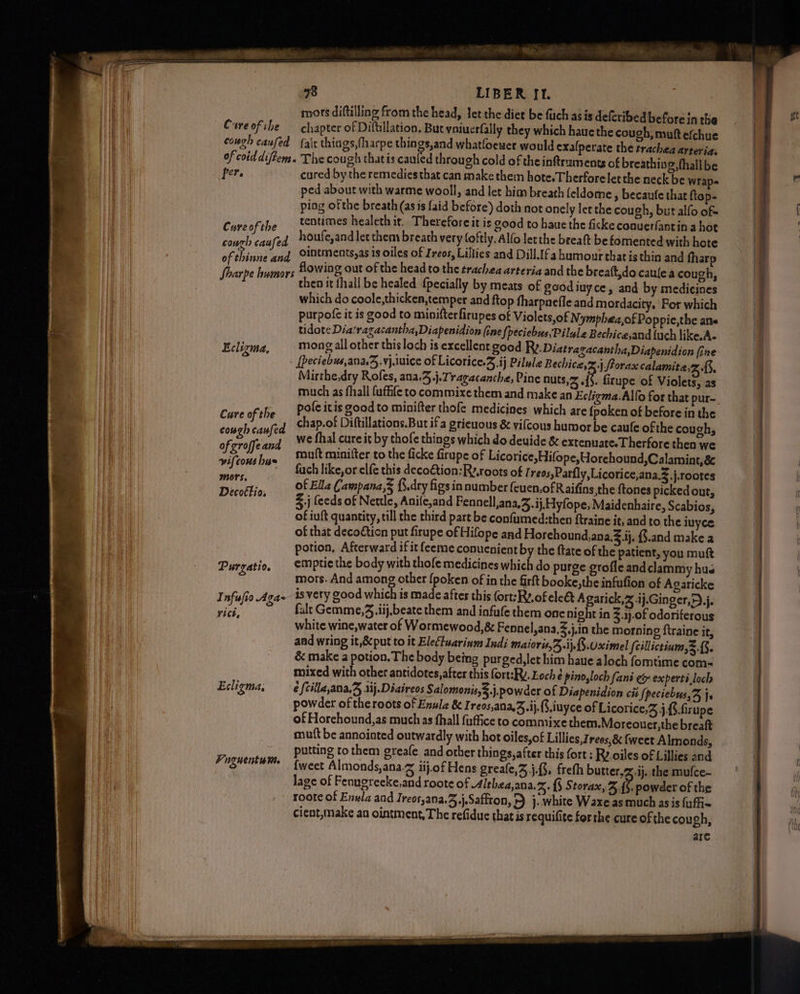 78 LIBER II.
mors distilling from the head, let the diet be such as is described before in the
chapter of Distillation. But vniuersally they which haue the cough, must eschue
salt things, sharpe things, and whatsoeuer would exasperate the trachea arteria.
Cure of the
cough caused
of cold distem-
per.
The cough that is caused through cold of the instruments of breathing, shall be
cured by the remedies that can make them hote. Therfore let the neck be wrap-
ped about with warme wooll, and let him breath seldome, because that stop-
ping of the breath (as is said before) doth not onely let the cough, but also of-
tentimes healeth it. Therefore it is good to haue the sicke conuersant in a hot
house, and let them breath very softly. Also let the breast be fomented with hote
ointments, as is oiles of Ireos, Lillies and Dill. If a humour that is thin and sharp
Cure of the
cough caused
of thinne and
sharpe humors
flowing out of the head to the trachea arteria and the breast, do cause a cough,
then it shall be healed specially by meats of good iuyce, and by medicines
which do coole, thicken, temper and stop sharpnesse and mordacity. For which
purpose it is good to minister sirupes of Violets, of Nymphea, of Poppie, the an-
tidote Diatragacantha, Diapenidion sine speciebus, Pilule Bechice, and such like. A-
Ecligma,
mong all other this loch is excellent good ℞. Diatragacantha, Diapenidion sine
speciebus, ana, ʒ. vj. iuice of Licorice. ʒ. ij Pilule Bechice, ʒ. j storax calamita, ʒ. ß.
Mirthe, dry Roses, ana. ʒ. j. Tragacanthe, Pine nuts, ʒ. ß. sirupe of Violets, as
much as shall suffise to commixe them and make an Ecligma. Also for that pur-
pose it is good to minister those medicines which are spoken of before in the
Cure of the
cough caused
of grosse and
viscous hu-
mors.
chap. of Distillations. But if a grieuous & viscous humor be cause of the cough,
we shal cure it by those things which do deuide & extenuate. Therfore then we
must minister to the sicke sirupe of Licorice, Hisope, Horehound, Calamint, &
such like, or else this decoction: ℞. roots of Ireos, Parsly, Licorice, ana. ℥. j. rootes
Decoctio,
of Ella Campana, ℥ ß. dry figs in number seuen, of Raisins, the stones picked out,
℥. j seeds of Nettle, Anise, and Fennell, ana, ʒ. ij, Hysope, Maidenhaire, Scabios,
of iust quantity, till the third part be consumed: then straine it, and to the iuyce
of that decoction put sirupe of Hisope and Horehound, ana. ℥. ij. ß. and make a
potion, Afterward if it seeme conuenient by the state of the patient, you must
Purgatio,
emptie the body with those medicines which do purge grosse and clammy hu-
mors. And among other spoken of in the first booke, the infusion of Agaricke
Infusio Aga-
rici,
is very good which is made after this sort: ℞. of elect Agarick, ʒ ij. Ginger, ℈. j.
salt Gemme, ʒ. iij, beate them and infuse them one night in ℥. ij. of odoriferous
white wine, water of Wormewood, & Fennel, ana, ℥. j, in the morning straine it,
and wring it, & put to it Electuarium Indi maioris, ʒ. ij. ß. Oximel scillictium, ℥. ß.
& make a potion. The body being purged, let him haue a loch somtime com-
mixed with other antidotes, after this sort: ℞. Loch è pino, loch sani & experti, loch
Ecligma,
è scilla, ana, ʒ iij. Diaireos Salomonis, ℥. j. powder of Diapenidion cū speciebus, ʒ j.
powder of the roots of Enula & Ireos, ana, ʒ. ij. ß. iuyce of Licorice, ʒ j. ß. sirupe
of Horehound, as much as shall suffice to commixe them. Moreouer, the breast
must be annointed outwardly with hot oiles, of Lillies, Irees, & sweet Almonds,
putting to them grease and other things, after this sort: ℞ oiles of Lillies and
Vnguentum.
sweet Almonds, ana. ʒ iij. of Hens grease, ʒ. j. ß, fresh butter, ʒ. ij. the musce-
lage of Fenugreeke, and roote of Althea, ana. ʒ. ß Storax, ʒ ß. powder of the
roote of Enula and Ireos, ana. ʒ. j. Saffron, ℈ j. white Waxe as much as is suffi-
cient, make an ointment, The residue that is requisite for the cure of the cough,
are